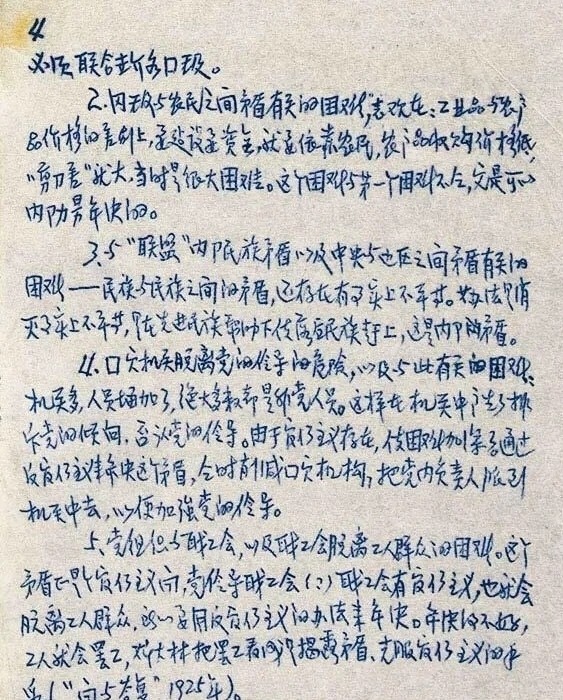 4
必须联合世界各阶级。
2.内部与农民之间矛盾有关的困难,表现在:工业品与农产
品价格的差别上,是建设是资金,就是依靠农民,农产品收购价格低,
“剪刀差”就大,当时是很大困难。这个困难与第一个困难不同,它是可以
内部解决的。
3.与“联盟”内部民族矛盾以及中央与边区之间矛盾有关的
困难——民族与民族之间的矛盾,还存在有事实上不平等。其办法只有消
灭事实上不平等,只在先进民族帮助下使落后民族赶上,这是内部的矛盾。
4.国家机关脱离党的领导的危险,以及与此有关的困难:
机关多,人员增加了,绝大多数都是非党人员。这样在机关中产生了排
斥党的倾向,否认党的领导。由于官僚主义存在,使困难加深了通过
反官僚主义来解决这个矛盾,同时削减国家机构,把党内负责人派到
机关中去,以便加强党的领导。
5、党组织与职工会,以及职工会脱离工人群众的困难。这个
矛盾也是个官僚主义问,党领导职工会(?)职工会有官僚主义,也就会
脱离工人群众,所以要用反官僚主义的办法来解决。解决得不好,
工人就会罢工,斯大林把罢工看成是揭露矛盾、克服官僚主义的手
(“问与答”1925年)。